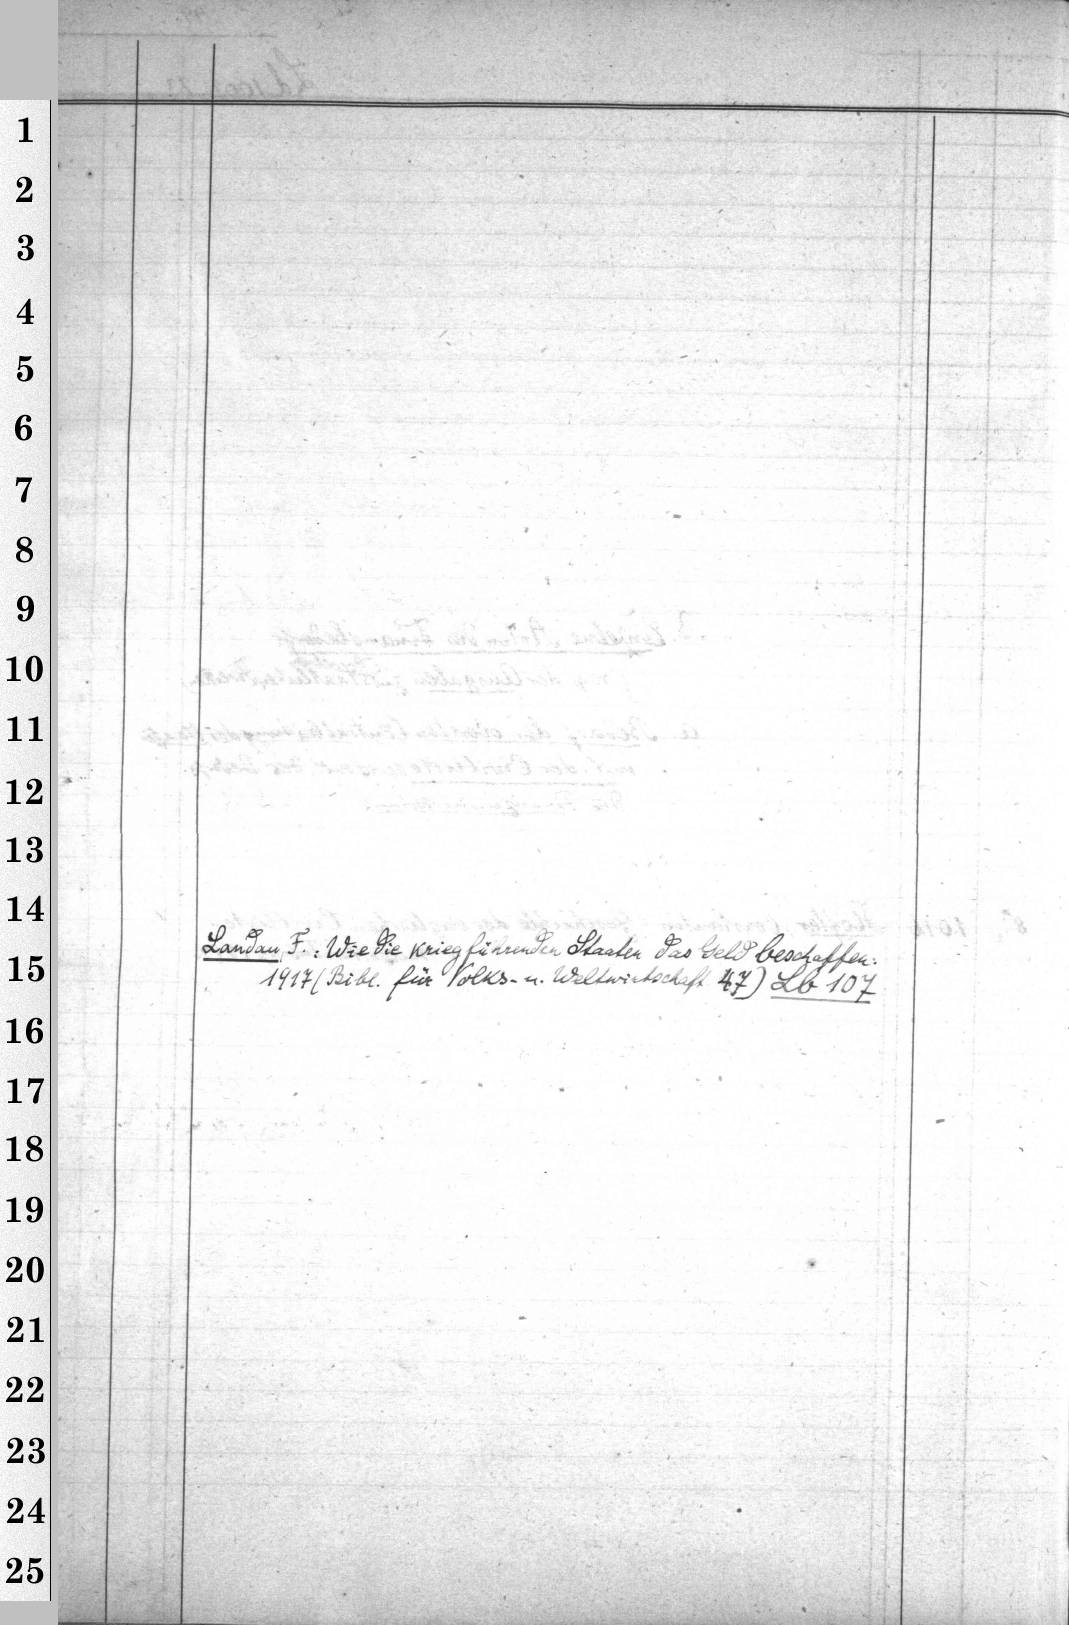 1
2
3
4
5
6
7
8
9
10
11
12
13
14
Landau, F.: Wie die kriegführenden Staaten das Geld beschaffen.
15
1917 (Bibl. für Volks- u. Weltwirtschaft 47) Lb 107
16
17
18
19
20
21
22
23
24
25